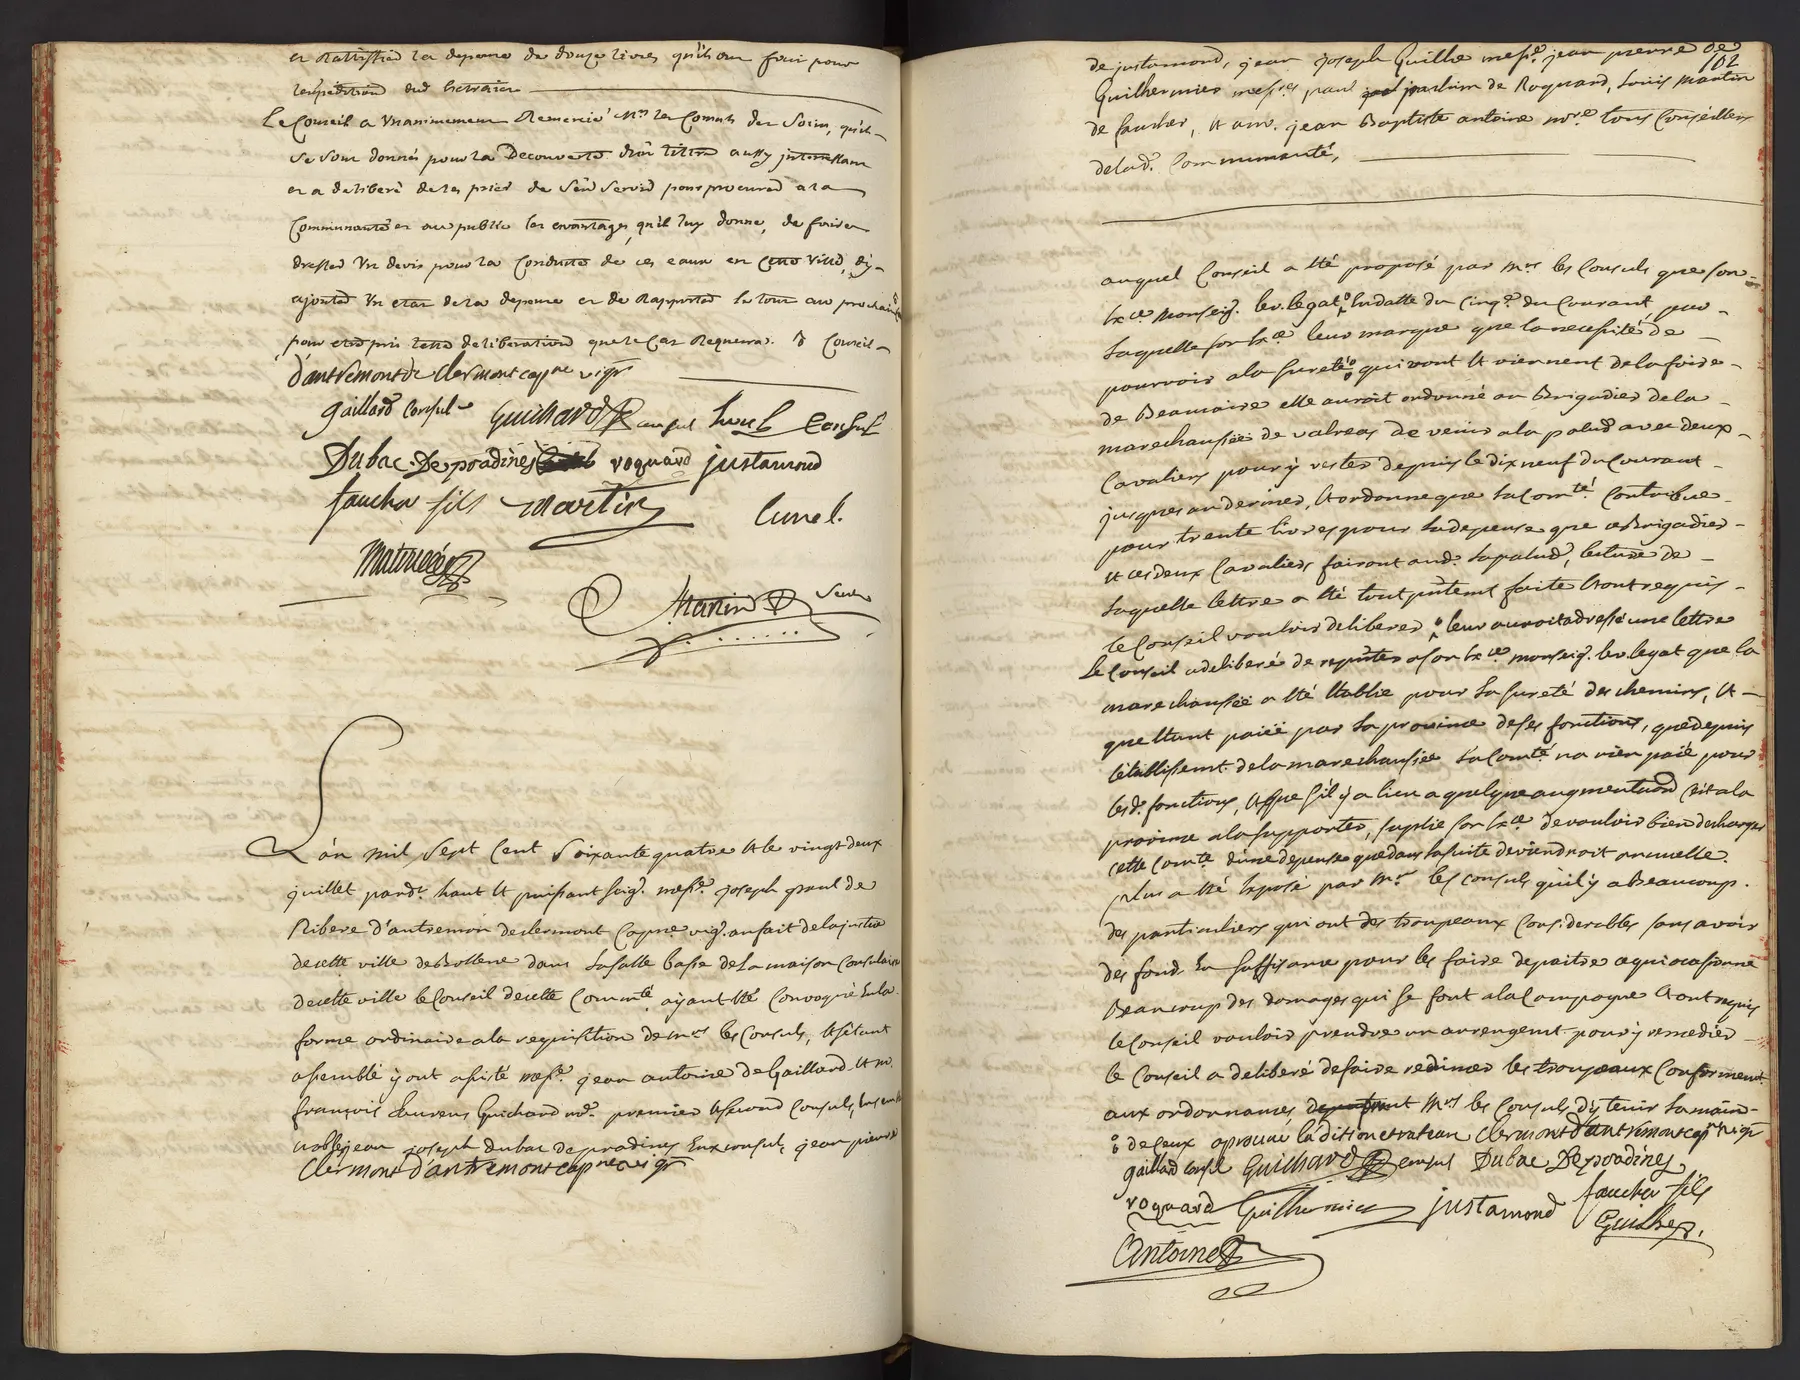 et Rattiffier la depence de douze livres qu'ils ont fait pour
l'expedition dud. extrait
Le Conseil a unanimement Remercié Mrs les Consuls des Soins, qu'ils
se sont donnés pour la Decouverte d'un titre aussy interressant
et a deliberé de les prier de s'en servir pour procurer a la
Communauté et au public les avantages, qu'il luy donne, de faire
dresser un devis pour la Conduitte de ces eaux en Cette Ville, d'y
ajouter un etat de la depence et de Rapporter le tout au prochain
pour etre pris telle deliberation que le Cas Requerra. Conseil
d'antremont de Clermont capne vigr
gaillard Consul Guichard consul Consul
Dubac. Despradines roquard justamond
faucher fils Martin lunel.
Martin Secre
L'an mil Sept Cent Soixante quatre et le vingt deux
juillet pardt haut et puissant Seigr. messe. joseph paul de
Ribere d'antremon de clermont Capne. vigr. au fait de la justice
de cette ville de Bollene dans la salle basse de la maison Consulaire
de cette ville le Conseil de cette Commté ayant été Convoqué en la
forme ordinaire a la requisition de mrs les Consuls, et s'étant
assemblé y ont assisté messe. jean antoine de Gaillard et m.
françois Laurens Guichard nre. premier et second Consuls,
noble jean joseph dubac de pradines Exconsul, jean pierre
Clermont d'antremont capne vigr
de justamond, jean joseph Guilhe messe. jean pierre de
Guilhermier messres paul de Roquard, Louis Martin
de faucher, et a m. jean Baptiste antoine nore. tous Conseillers
de lad. Communauté,
auquel Conseil a été proposé par mrs les Consuls que son
Exce. Monseigr. le v. legat en datte du cinqe. du Courant par
laquelle son Exce leur marque que la necessité de
pourvoir a la sureté qui vont et viennent de la foire
de Beaucaire elle auroit ordonné au Brigadier de la
marechaussée de valreas de venir a la palud avec deux
Cavaliers pour y rester depuis le dix neuf du Courant
jusques au dernier, et ordonne que la Comté Contribue
pour trente livres pour la depense que ce Brigadier
et ces deux Cavaliers fairont aud. Lapalud, lecture de
laquelle lettre a été tout p̃ntemt faite et ont requis
le Conseil vouloir deliberer leur auroit adressé une lettre
Le Conseil a deliberé de repñter a son Exce. monseigr. le v. legat que la
marechaussée a été Etablie pour la sureté des chemins, et
que étant paiée par la province de ses fonctions, que depuis
l'établissemt. de la marechaussée la Comté na rien paié pour
lesd. fonctions, et que s'il y a lieu a quelque augmentation c'est a la
province a la supporter, suplie son Exce de vouloir bien decharger
cette Comté d'une depense que dans la suite deviendroit annuelle.
plus a été Exposé par Mrs les consuls qu'il y a Beaucoup
des particuliers qui ont des troupeaux Considerables sans avoir
des fond En suffisance pour les faire depaitre ce qui ocasionne
Beaucoup des domages qui se font a la Campagne et ont requis
le Conseil vouloir prendre un arrengemt pour y remedier
le Conseil a deliberé de faire reduirer les troupeaux Conformemt
aux ordonnances Mrs les Consuls d'y tenir la main
de Ceux aprouué l'addition et rature Clermont d'antremont capne vigr
gaillard consul Guichard consul Dubac Despradines
roquard Guilhermier justamond faucher fils
Guilhe
Antoine